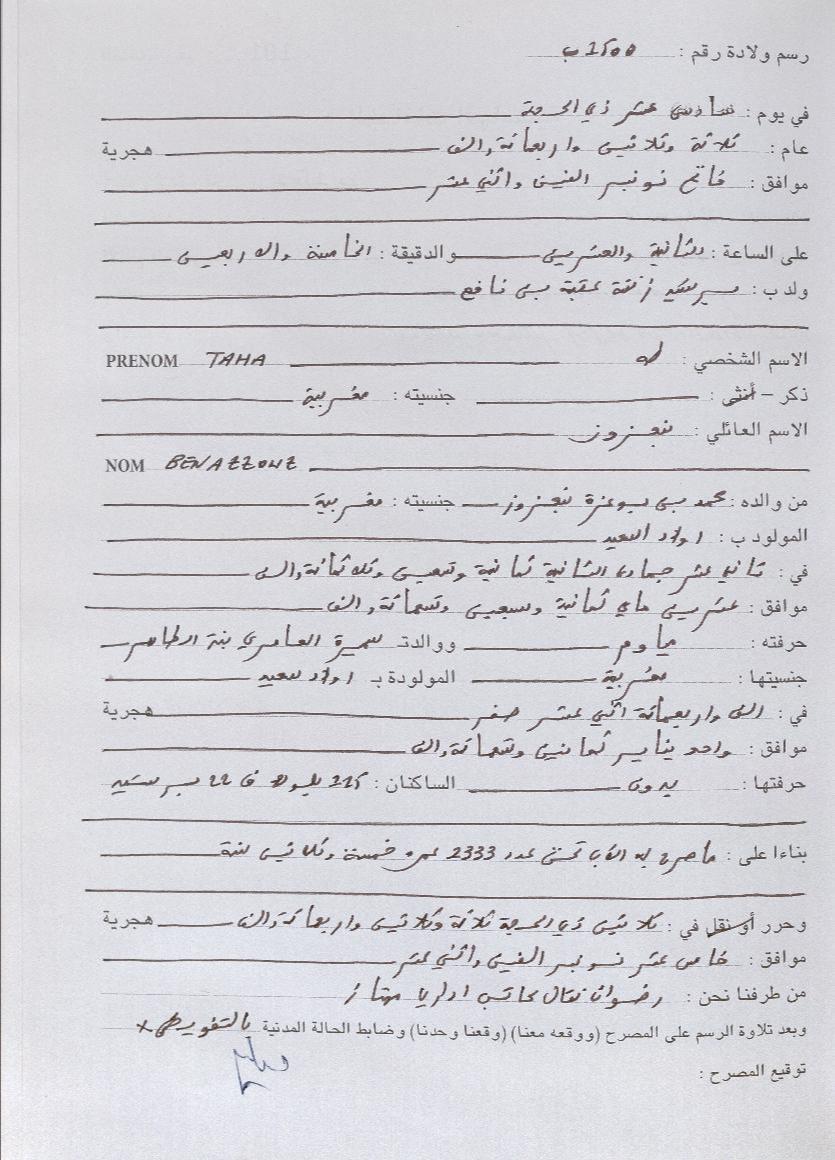 رسم ولادة رقم : 2500 ب
في يوم : سادس عشر ذي الحجة
عام : ثلاثة وثلاثين واربعمائة والف هجرية
موافق : فاتح نونبر الفين واثني عشر
على الساعة : الثانية والعشرين والدقيقة : الخامسة والاربعين
ولد ب : برشيد زنقة عقبة بن نافع
الاسم الشخصي : طه PRENOM TAHA
ذكر – أنثى : جنسيته : مغربية
الاسم العائلي : بنعزوز
NOM BENAZZOUZ
من والده : محمد بن بوعزة بنعزوز جنسيته : مغربية
المولود ب : اولاد السعيد
في : ثاني عشر جمادى الثانية ثمانية وتسعين وثلاثمائة والف
موافق : عشرين ماي ثمانية وسبعين وتسعمائة والف
حرفته : مياوم ووالدتـ سميرة العامري بنة الطاهر
جنسيتها : مغربية المولودة بـ اولاد سعيد
في : الف واربعمائة اثني عشر صفر هجرية
موافق : واحد يناير ثمانين وتسعمائة والف
حرفتها : بدون الساكنان : 225 بلوك ق 22 برشيد
بناءا على : ما صرح به الاب تحت عدد 2333 عمره خمسة وثلاثين سنة
وحرر أو نقل في : ثلاثين ذي الحجة ثلاثة وثلاثين واربعمائة والف هجرية
موافق : خامس عشر نونبر الفين واثني عشر
من طرفنا نحن : رضوان نقال كاتب اداريا ممتاز
وبعد تلاوة الرسم على المصرح (ووقعه معنا) (وقعنا وحدنا) وضابط الحالة المدنية بالتفويض +
توقيع المصرح :